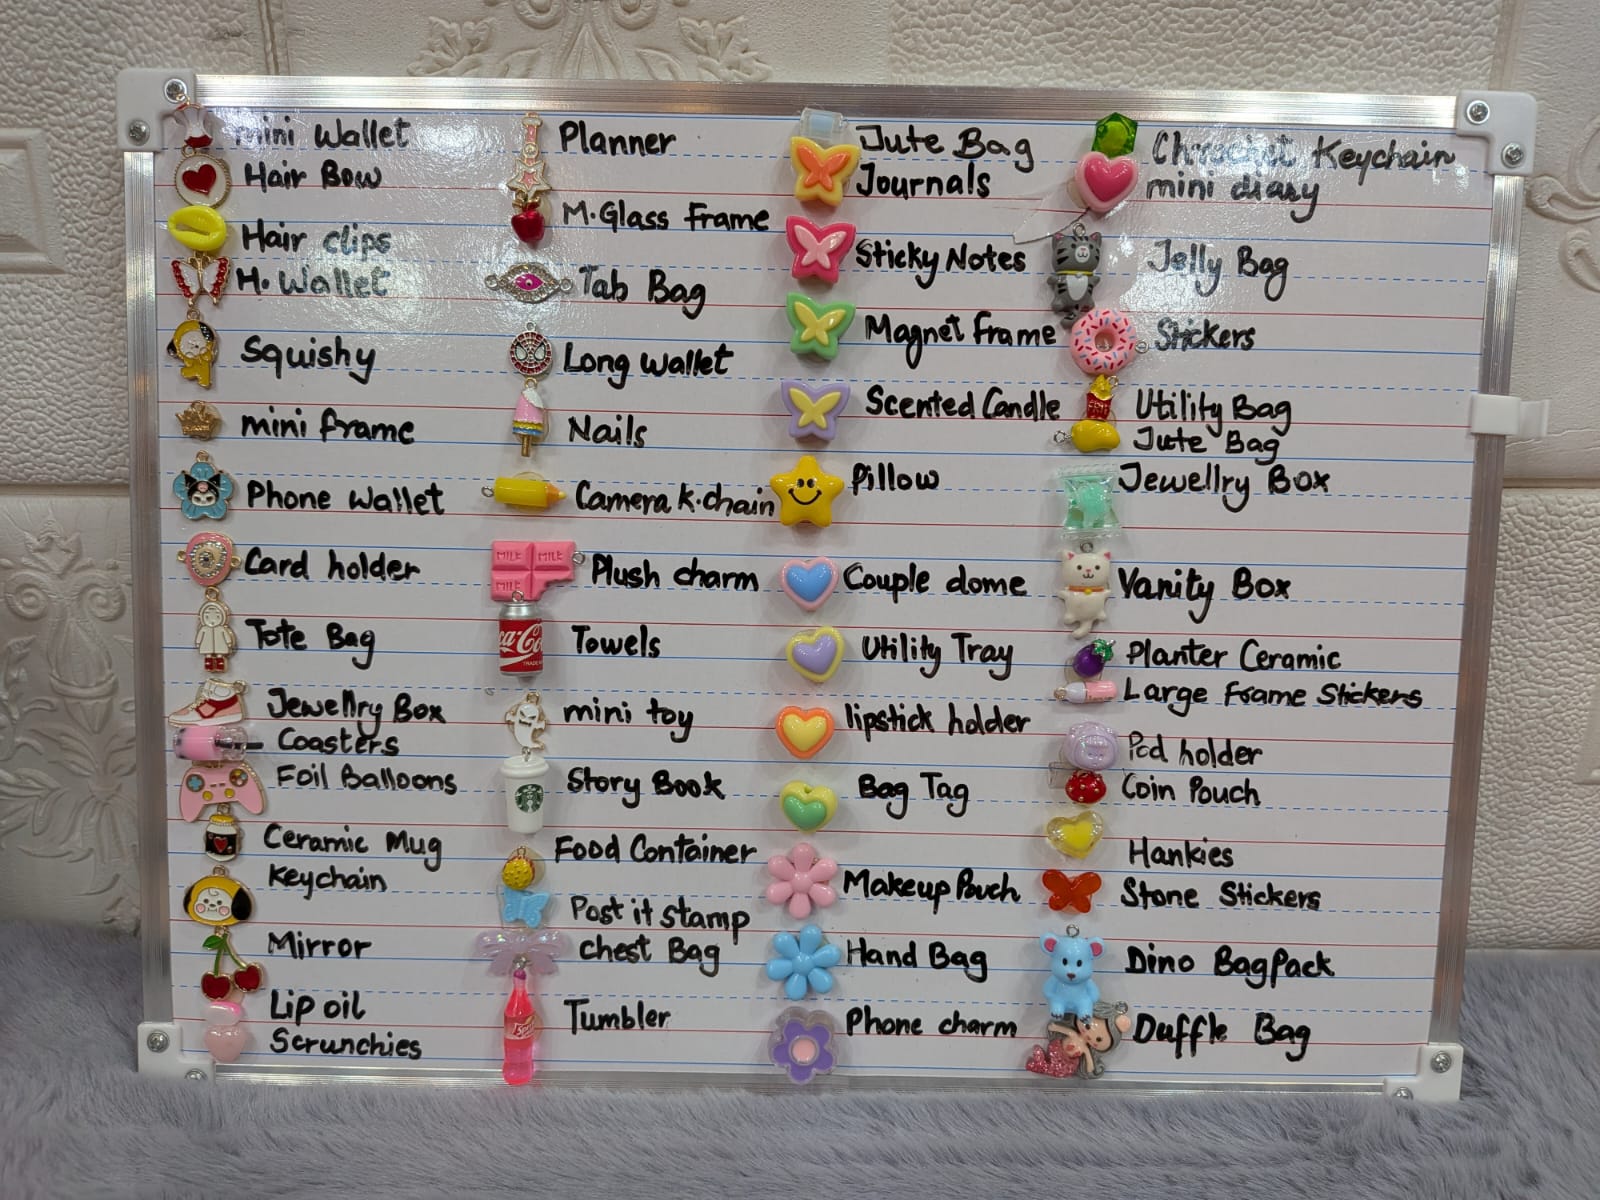 mini Wallet
Hair Bow
Hair clips
H. Wallet
Squishy
mini frame
Phone Wallet
Card holder
Tote Bag
Jewellry Box
Coasters
Foil Balloons
Ceramic Mug
Keychain
Mirror
Lip oil
Scrunchies
Planner
M.Glass Frame
Tab Bag
Long Wallet
Nails
Camera k.chain
MILK MILK
MILK
Plush charm
Towels
mini toy
Story Book
Food Container
Post it stamp
chest Bag
Tumbler
Jute Bag
Journals
Sticky Notes
Magnet frame
Scented Candle
Pillow
Couple dome
Utility Tray
lipstick holder
Bag Tag
Makeup Pouch
Hand Bag
Phone charm
Chrochet Keychain
mini diary
Jelly Bag
Stickers
Utility Bag
Jute Bag
Jewellry Box
Vanity Box
Planter Ceramic
Large Frame Stickers
Pod holder
Coin Pouch
Hankies
Stone Stickers
Dino BagPack
Duffle Bag